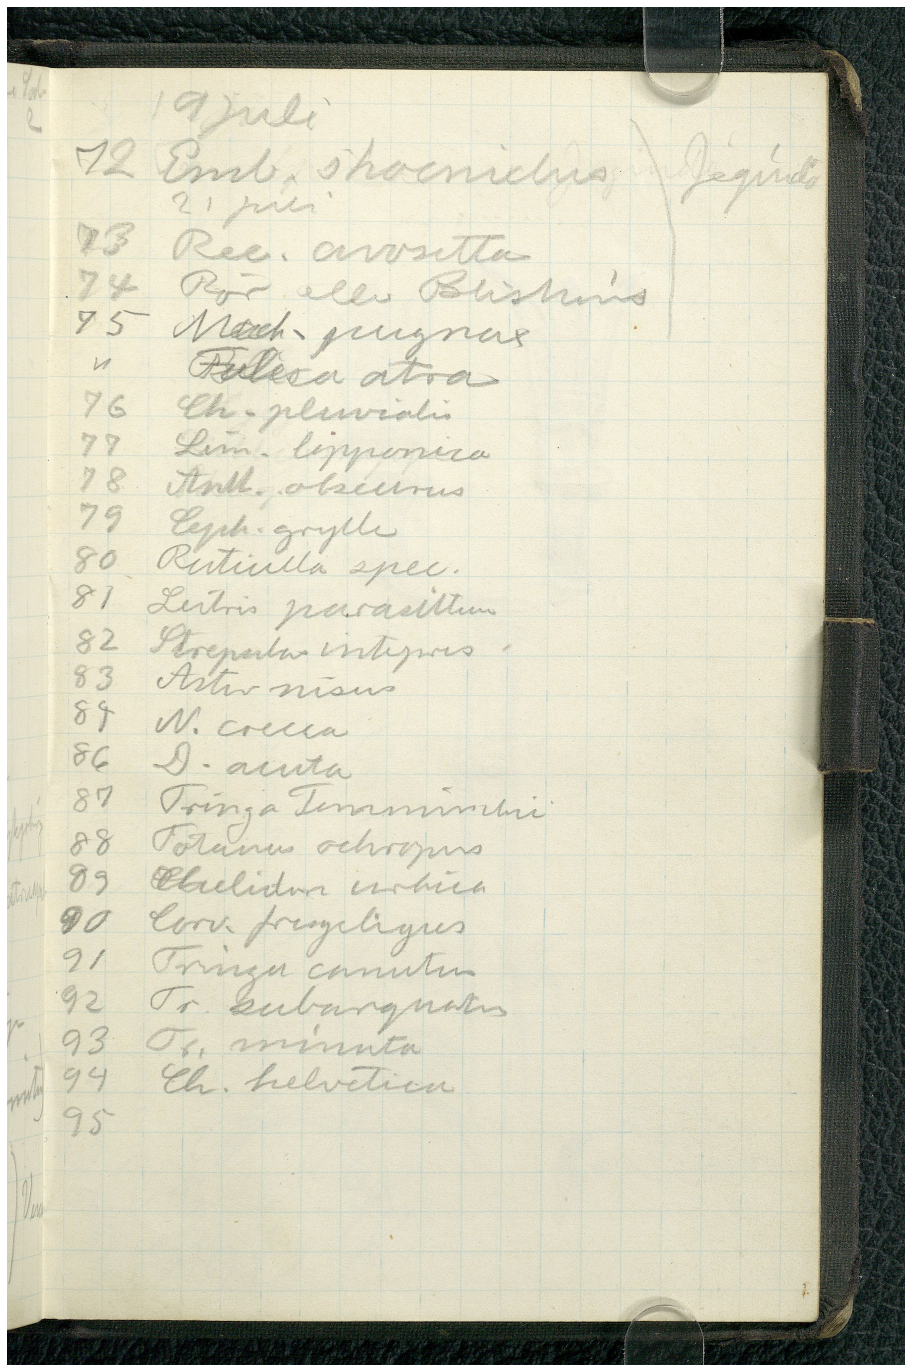 19 juli
72 Emb. shoeniclus Jegindö
21 juli
73 Rec. avosetta
74 Rör elle Blishöns
75 Mach. pugnax
" Fulica atra
76 Ch. pluvialis
77 Lim. lapponica
78 Anth. obscurus
79 Ceph. grylle
80 Ruticilla spec.
81 Lestris parasittus
82 Strepsilas intepres
83 Astur nisus
84 N. crecca
86 D. acuta
87 Tringa Temminckii
88 Totanus ochropus
89 Chelidon urbica
90 Corv. frugeligus
91 Tringa canutus
92 Tr. subarquatus
93 Tr. minuta
94 Ch. helvetica
95